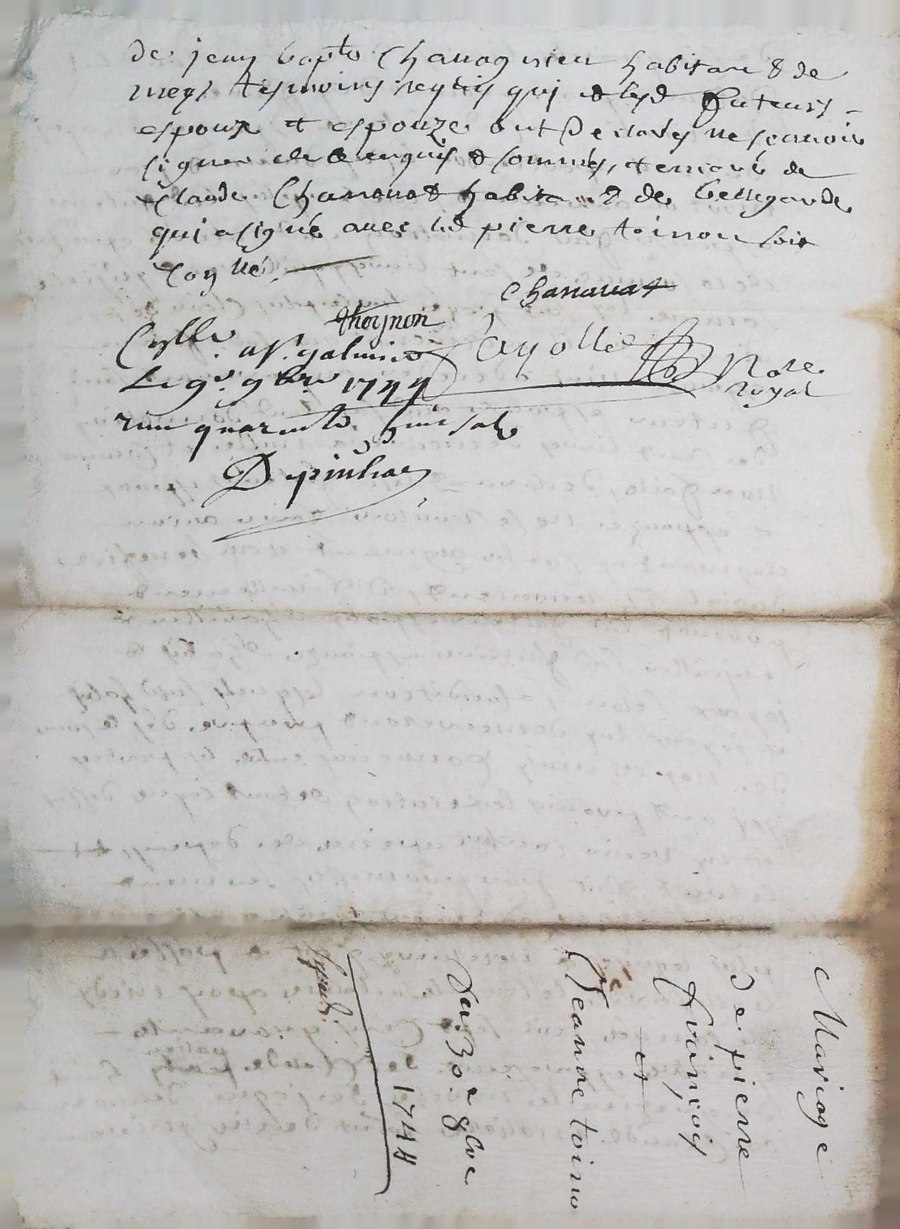 de jean bapte Chavagnieu habitan & de
megs tesmoins requis qui & lesd futeurs
espoux et espouze ont declarés ne scavoir
signer de ce enquis & sommés, et encore de
Claude Chanavat habitan & de bellegarde
qui a signé avec led pierre toinon soit
conllé
Chanavat
thoynon
Cnlle a St galmier
Fayolle Nore royal
Le 9e 9bre 1744
reçu quarante huit sols
Depinhac
Mariage
de pierre
françois
et
Jeanne toino
Du 30e 8bre
1744